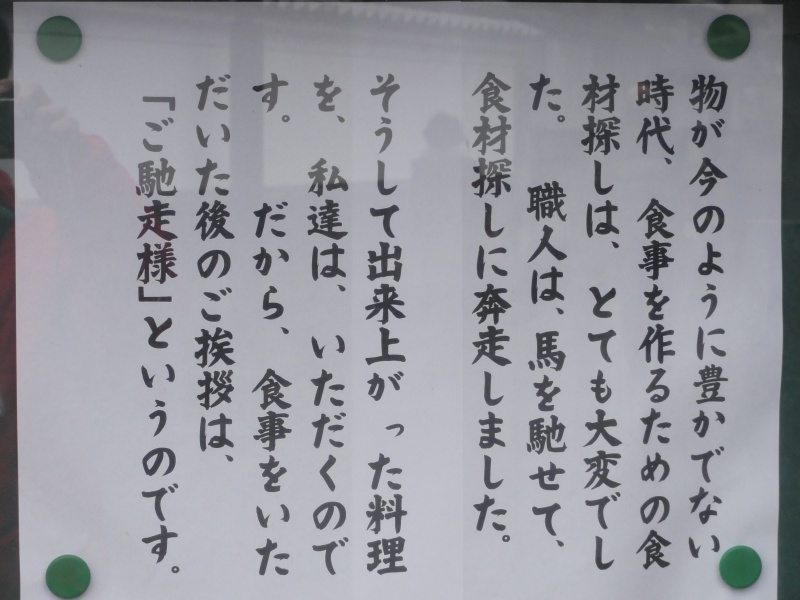 物が今のように豊かでない
時代、食事を作るための食
材探しは、とても大変でし
た。　職人は、馬を馳せて、
食材探しに奔走しました。
そうして出来上がった料理
を、私達は、いただくので
す。　だから、食事をいた
だいた後のご挨拶は、
「ご馳走様」というのです。